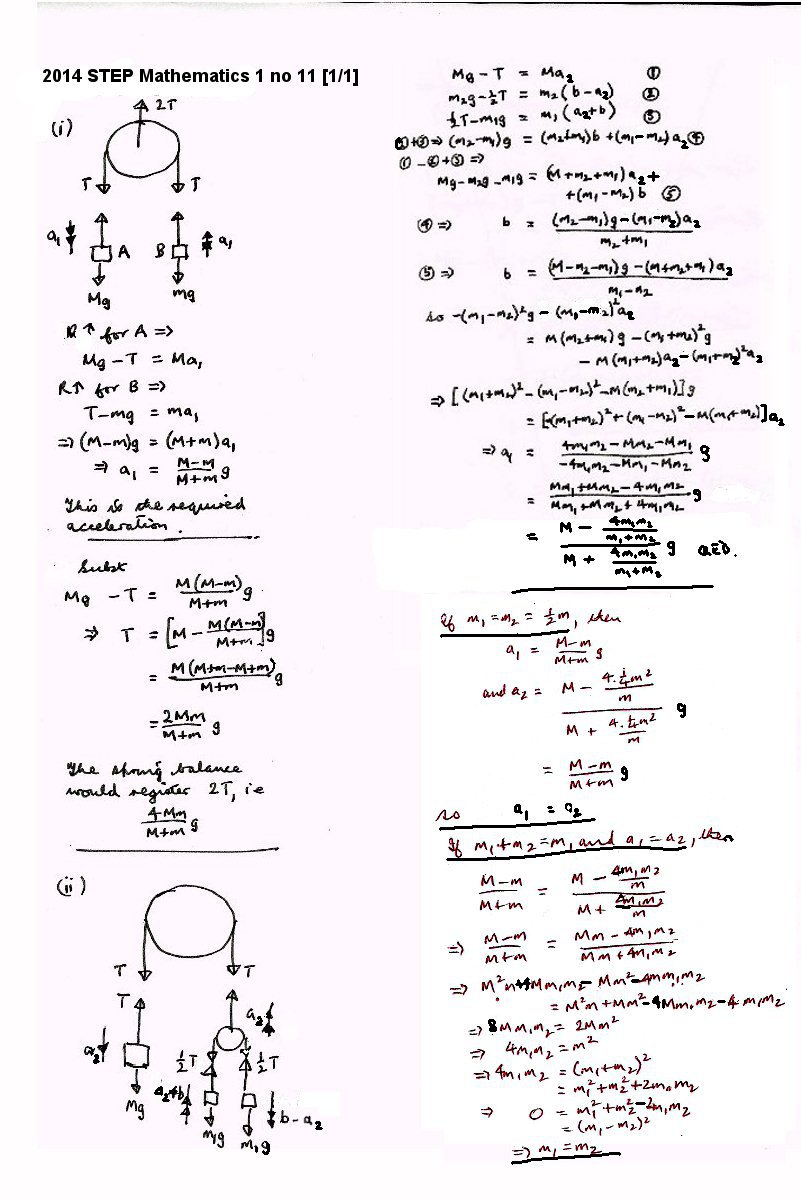 2014 STEP Mathematics 1 no 11 [1/1]
(i)
2T
T T
a₁ A B a₁
Mg mg
R↑ for A ⇒
Mg - T = Ma₁
R↑ for B ⇒
T - mg = ma₁
⇒ (M-m)g = (M+m)a₁
⇒ a₁ = (M-m)/(M+m) g
This is the required
acceleration.
Subst
Mg - T = M(M-m)/(M+m) g
⇒ T = [M - M(M-m)/(M+m)]g
= M(M+m-M+m)/(M+m) g
= 2Mm/(M+m) g
The spring balance
would register 2T, i.e
4Mm/(M+m) g
(ii)
T T
T
a₂ a₂
½T ½T
a₂+b
Mg
m₁g m₁g b-a₂
Mg - T = Ma₂ ①
m₂g - ½T = m₂(b-a₂) ②
½T - m₁g = m₁(a₂+b) ③
②+③ ⇒ (m₂-m₁)g = (m₂+m₁)b + (m₁-m₂)a₂ ④
①-②+③ ⇒
Mg - m₂g - m₁g = (M+m₂+m₁)a₂ +
+(m₁-m₂)b ⑤
④ ⇒ b = ((m₂-m₁)g - (m₁-m₂)a₂)/(m₂+m₁)
⑤ ⇒ b = ((M-m₂-m₁)g - (M+m₂+m₁)a₂)/(m₁-m₂)
so -(m₁-m₂)²g - (m₁-m₂)²a₂
= M(m₂+m₁)g - (m₁+m₂)²g
- M(m₁+m₂)a₂ - (m₁+m₂)²a₂
⇒ [(m₁+m₂)² - (m₁-m₂)² - M(m₂+m₁)]g
= [-(m₁+m₂)² + (m₁-m₂)² - M(m₁+m₂)]a₂
⇒ a₂ = (4m₁m₂ - Mm₂ - Mm₁)/(-4m₁m₂ - Mm₁ - Mm₂) g
= (Mm₁ + Mm₂ - 4m₁m₂)/(Mm₁ + Mm₂ + 4m₁m₂) g
= (M - 4m₁m₂/(m₁+m₂))/(M + 4m₁m₂/(m₁+m₂)) g QED.
If m₁ = m₂ = ½m, then
a₁ = (M-m)/(M+m) g
and a₂ = (M - 4.¼m²/m)/(M + 4.¼m²/m) g
= (M-m)/(M+m) g
so a₁ = a₂
If m₁+m₂ = m, and a₁ = a₂, then
(M-m)/(M+m) = (M - 4m₁m₂/m)/(M + 4m₁m₂/m)
⇒ (M-m)/(M+m) = (Mm - 4m₁m₂)/(Mm + 4m₁m₂)
⇒ M²m + 4Mm₁m₂ - Mm² - 4mm₁m₂
= M²m + Mm² - 4Mm₁m₂ - 4m m₁m₂
⇒ 8Mm₁m₂ = 2Mm²
⇒ 4m₁m₂ = m²
⇒ 4m₁m₂ = (m₁+m₂)²
= m₁²+m₂²+2m₁m₂
⇒ 0 = m₁²+m₂²-2m₁m₂
= (m₁-m₂)²
⇒ m₁ = m₂